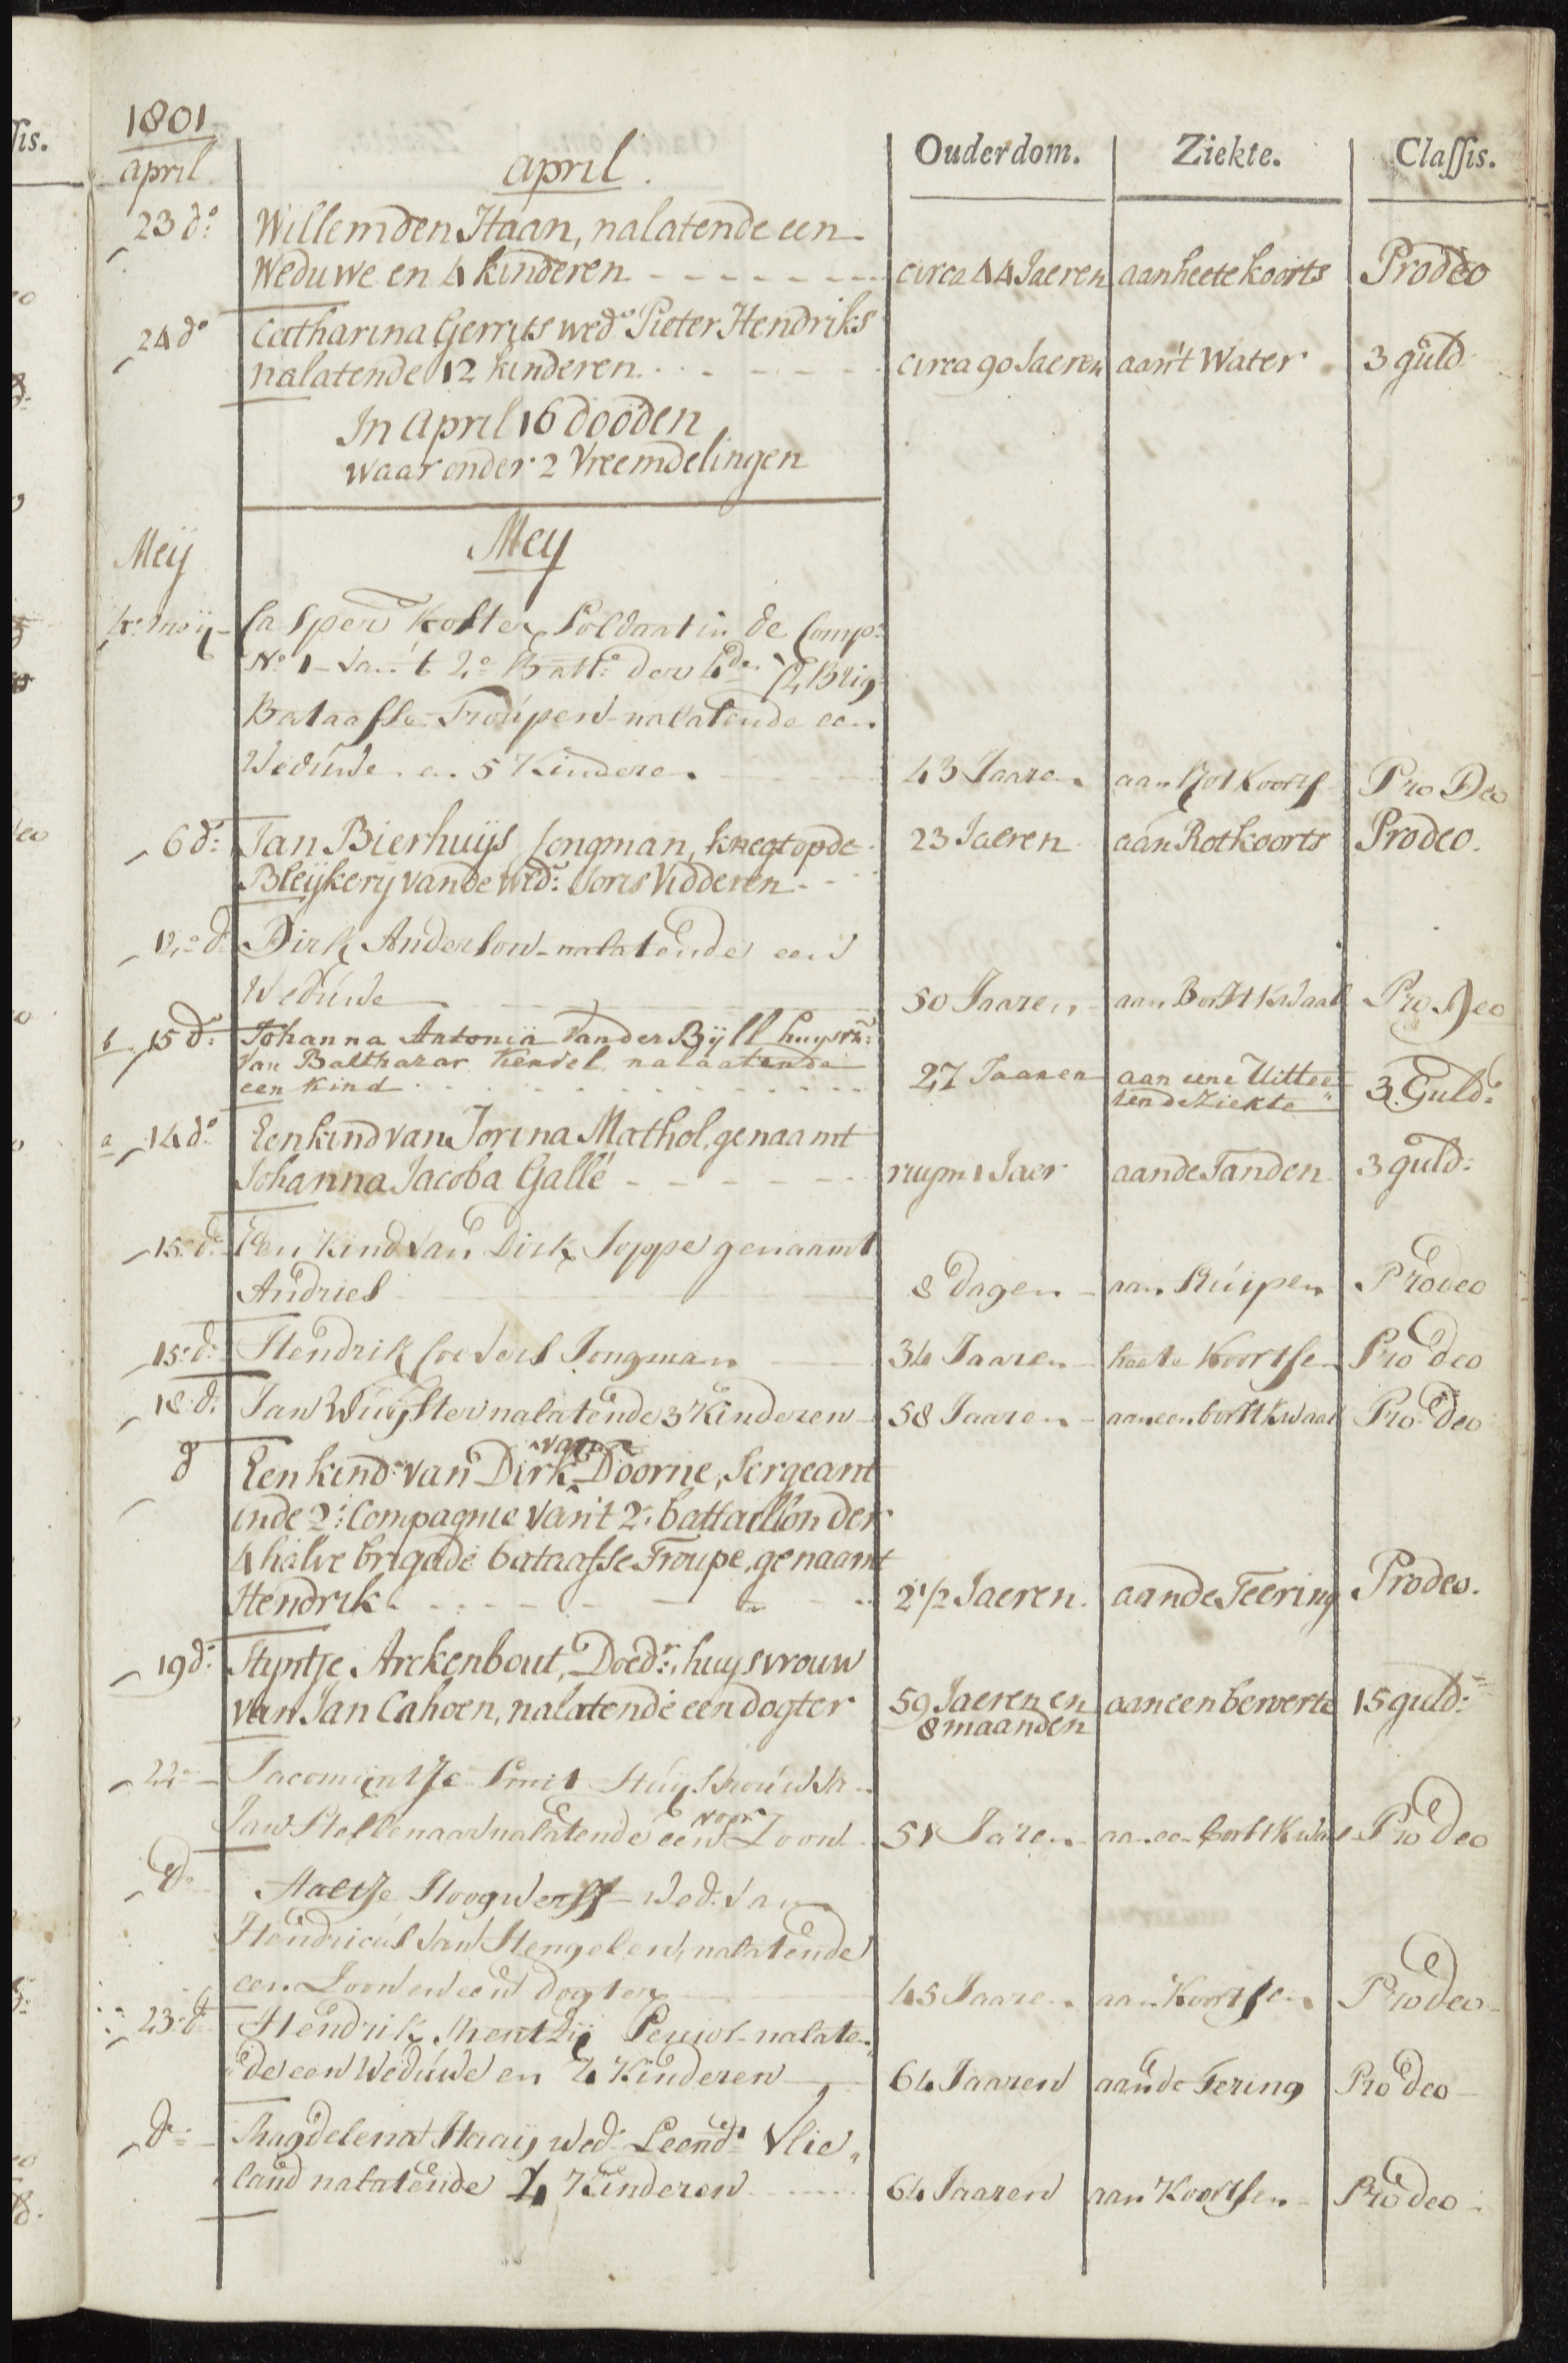 1801
april
april.
Ouderdom. Ziekte. Classis.
23 do: Willem den Haan, nalatende een
Weduwe en 4 kinderen circa 44 Jaeren aan heete koorts Prodeo
24 do Catharina Gerrits wede Pieter Hendriks
nalatende 12 kinderen circa 90 Jaeren aan't Water 3 guld
In april 16 dooden
waar onder 2 Vreemdelingen
Meij
Mey
4e meij Casper Koster Soldaat in de Comp:
No 1 van t 2e Batt: der 4de 1/2 Brig
Bataafse Troupen nalatende een
Weduwe en 5 Kinderen 43 Jaaren aan Rotkoorts Pro Deo
6 do: Jan Bierhuijs Jongman, knegt op de 23 Jaeren aan Rotkoorts Prodeo.
Bleijkerij van de wed: Joris Vidderen
12e do Dirk Anderson nalatende een
Weduwe 50 Jaaren aan Borst kwaal Pro Deo
b 15 do: Johanna Antonia van der Bijll huysvr:
van Balthazar Kendel nalaatende
een kind 27 Jaaren aan eene Uittee
rende Ziekte 3 Guld:
a 14 do Een kind van Jorina Mathol, genaamt
Johanna Jacoba Gallé ruym 1 Jaer aan de Tanden 3 guld:
15 do: Een Kind van Dirk Joppe genaamt
Andries 8 Dagen aan Stuipen Prodeo
15 do: Hendrik Coevers Jongman 34 Jaaren heete Koortsen Pro deo
18 do: Jan Wuijster nalatende 3 Kinderen 58 Jaaren aan een borst kwaal Pro deo
do Een kind van Dirk van Doorne, Sergeant
in de 2: Compagnie van't 2: battaillon der
4 halve brigade bataafse Troupe, genaamt
Hendrik 2 1/2 Jaeren. aan de Teering Prodeo.
19 do: Styntje Arckenbout, Doedr: huysvrouw
van Jan Cahoen, nalatende een dogter 59 Jaeren en
8 maanden aan een beroerte 15 guld:
22e Jacomijntje Smit Huijsvrouw van
Jan Stellenaar nalatende een voor Zoon 51 Jaren aan een borst kwaal Pro deo
do Aaltje Hoogwerff Wed: van
Hendricus van Hengelen, nalatende
een Zoon en een dogter 45 Jaaren aan Koortsen Prodeo
23 do Hendrik Mentzij nalaten
de een Weduwe en 4 Kinderen 64 Jaaren aan de Tering Pro deo
do: Magdelena Haaij wed: Leendt Vlie
land nalatende 4 Kinderen 64 Jaaren aan Koortsen Prodeo